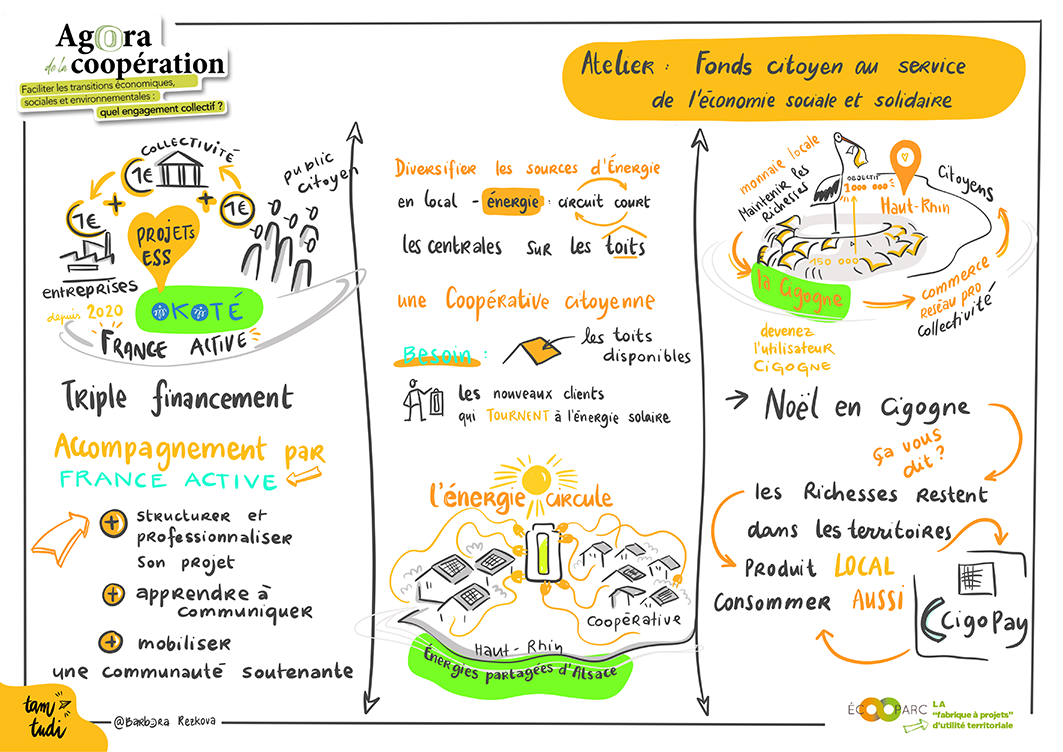 Agora
de la coopération
Faciliter les transitions économiques,
sociales et environnementales :
quel engagement collectif ?
Atelier : Fonds citoyen au service
de l'économie sociale et solidaire
COLLECTIVITÉ
1€
1€
1€
public
citoyen
PROJETS
ESS
entreprises
depuis 2020
OKOTÉ
FRANCE ACTIVE
Triple financement
Accompagnement par
FRANCE ACTIVE
structurer et
professionnaliser
son projet
apprendre à
communiquer
mobiliser
une communauté soutenante
Diversifier les sources d'Énergie
en local - énergie : circuit court
les centrales sur les toits
une Coopérative citoyenne
Besoin :
les toits
disponibles
les nouveaux clients
qui TOURNENT à l'énergie solaire
l'énergie circule
Coopérative
Haut-Rhin
Énergies partagées d'Alsace
monnaie locale
Maintenir les
Richesses
OBJECTIF
1000 000€
Citoyens
Haut-Rhin
150 000
la Cigogne
commerce
Réseau pro
collectivité
devenez
l'utilisateur
CIGOGNE
→ Noël en Cigogne
ça vous
dit ?
les Richesses restent
dans les territoires
Produit LOCAL
consommer AUSSI
CigoPay
tam
tudi
@Barbora Rezkova
ÉCOOPARC
LA
"fabrique à projets"
d'utilité territoriale